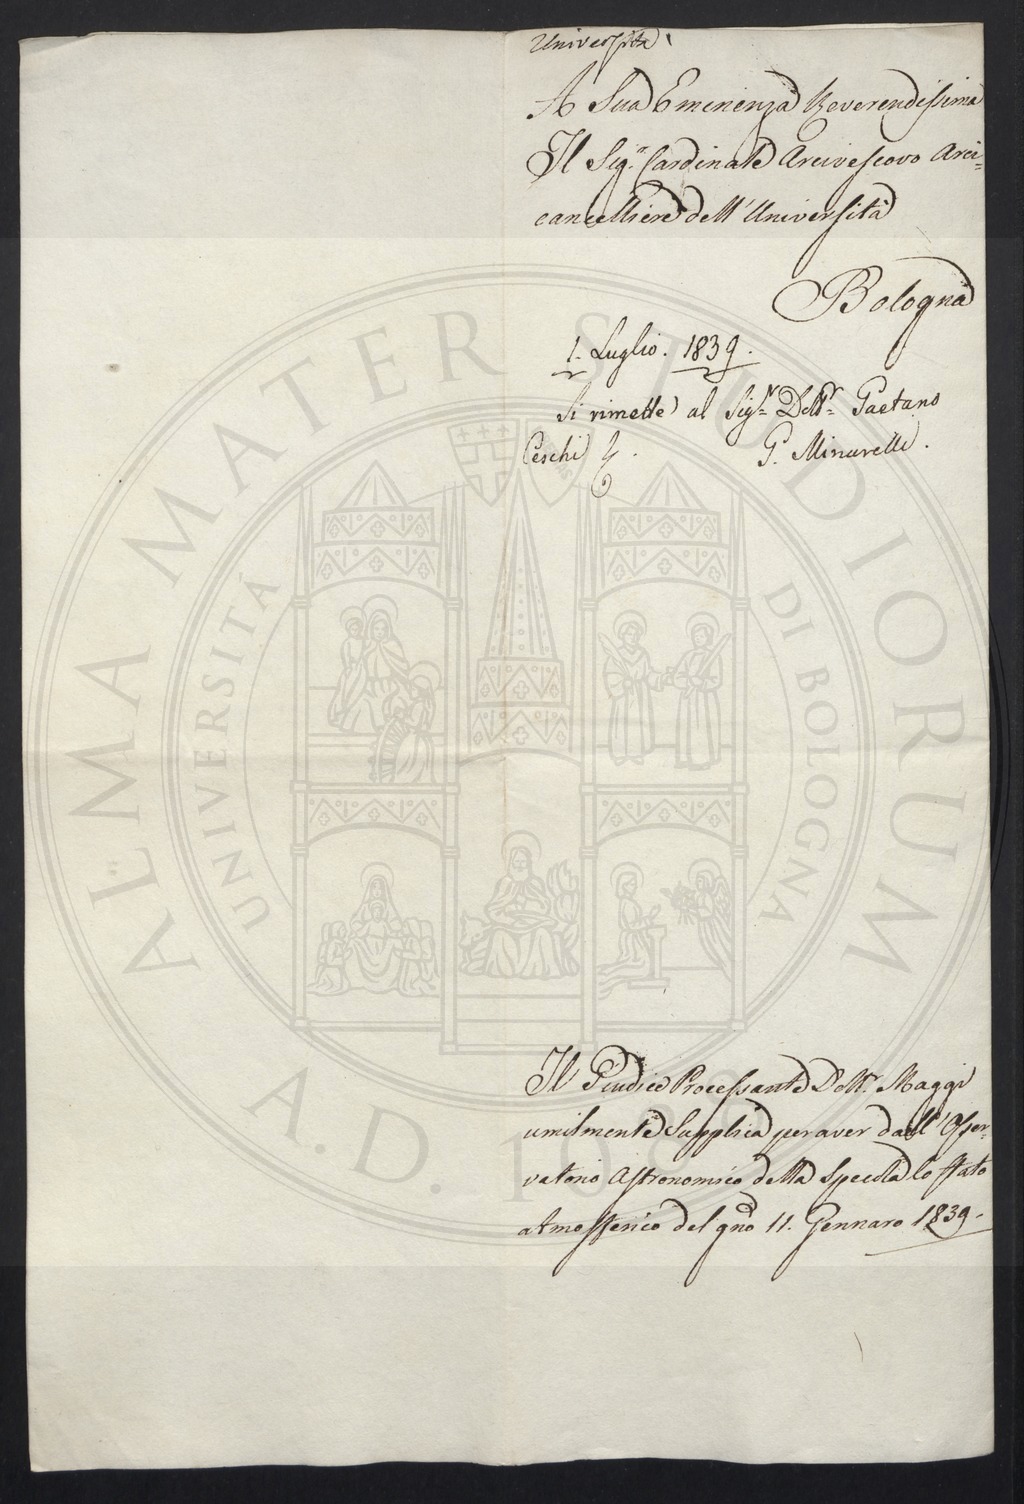 Università
A Sua Eminenza Reverendissima
Il Sig.r Cardinale Arcivescovo Arci=
cancelliere dell'Università
Bologna
1. Luglio. 1839.
Si rimette al Sig.r Dott.r Gaetano
Ceschi
G. Minarelli.
Il Giudice Processante Dott.r Maggi
umilmente Supplica per aver dall'Osser=
vatorio Astronomico della Specola lo stato
atmosferico del gno 11. Gennaro 1839.
ALMA MATER STUDIORUM
UNIVERSITÁ DI BOLOGNA
A.D. 1088